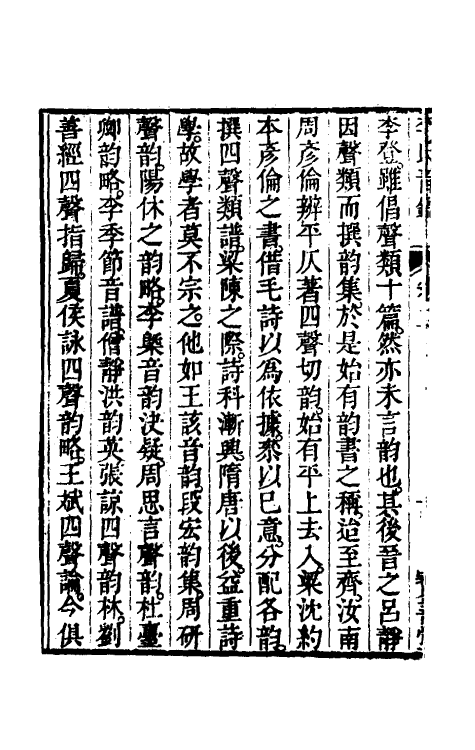 李登雖倡聲類十篇然亦未言韵也其後晉之呂靜
因聲類而撰韵集於是始有韵書之稱迨至齊汝南
周彥倫辨平仄著四聲切韵始有平上去入梁沈約
本彥倫之書借毛詩以爲依據叅以已意分配各韵
撰四聲類譜梁陳之際詩科漸興隋唐以後益重詩
學故學者莫不宗之他如王該音韵段宏韵集周研
聲韵陽休之韵略李槩音韵決疑周思言聲韵杜臺
卿韵略李季節音譜僧靜洪韵英張諒四聲韵林劉
善經四聲指歸夏侯詠四聲韵略王斌四聲論今俱